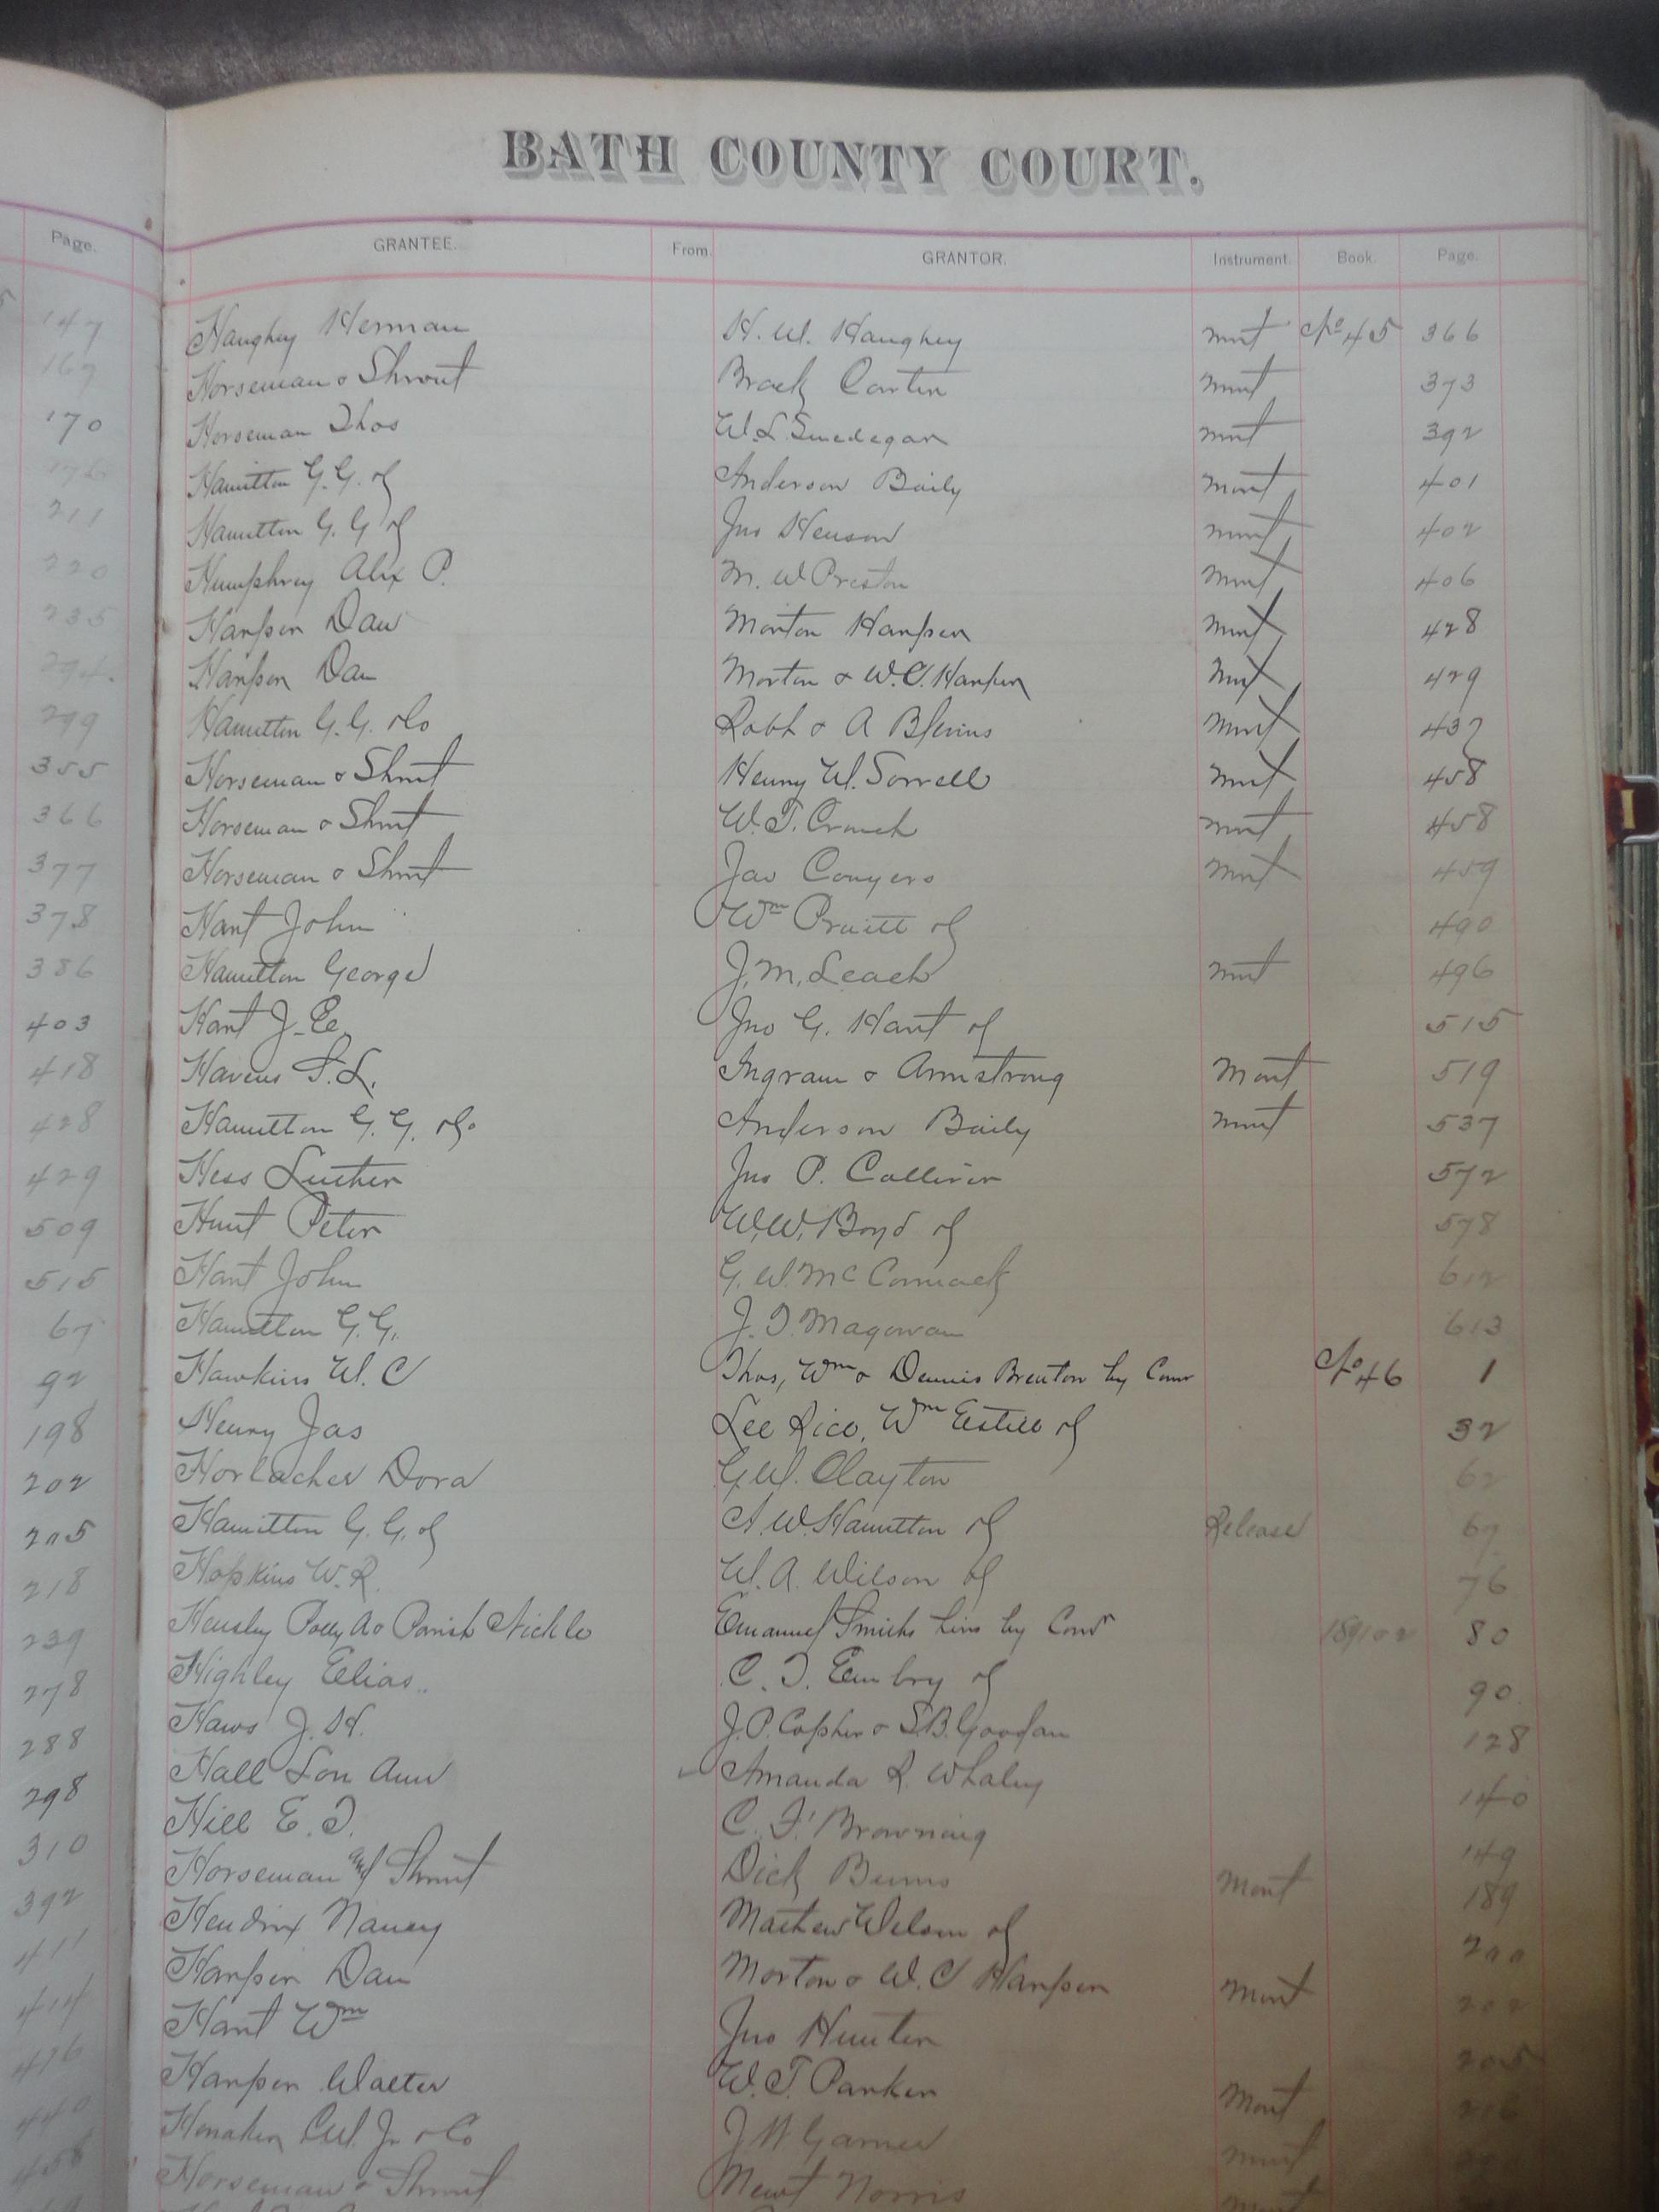 BATH COUNTY COURT.
Page. GRANTEE. From. GRANTOR. Instrument. Book. Page.
147 Haughey Herman H. W. Haughey Mort No 45 366
167 Horseman & Shrout Brack Carter Mort 373
170 Horseman Thos W. L. Smedegar Mort 392
176 Hamilton G. G. &c Anderson Baily Mort 401
211 Hamilton G. G &c Jno Henson Mort 402
220 Humphrey Alex P. M. W Preston Mort 406
235 Harper Dan Morton Harper Mort 428
294. Harper Dan Morton & W. C. Harper Mort 429
299 Hamilton G. G. &Co Robt & A Blevins Mort 437
355 Horseman & Shrout Henry W. Sorrell Mort 458
366 Horseman & Shrout W. T. Crouch Mort 458
377 Horseman & Shrout Jas Conyers Mort 459
378 Hart John Wm Pruitt &c 490
386 Hamilton George J. M. Leach Mort 496
403 Hart J. E. Jno G. Hart &c 515
418 Havens T. L. Ingram & Armstrong Mort 519
428 Hamilton G. G. &Co Anderson Baily Mort 537
429 Hess Luther Jno P. Colliver 572
509 Hunt Peter W. W. Boyd &c 578
515 Hart John G. W. McCormack 612
67 Hamilton G. G. J. T. Magowan 613
92 Hawkins W. C Thos, Wm & Dennis Brenton by Comr No 46 1
198 Henry Jas Lee Rice, Wm Estill &c 32
202 Horlacher Dora G. W. Clayton 62
205 Hamilton G. G. &c A. W. Hamilton &c Release 67
218 Hopkins W. R. W. A. Wilson &c 76
239 Hensley Polly A & Parish Nickle Emanuel Smiths heirs by Comr 80
278 Highley Elias C. T. Embry &c 90
288 Haws J. H. J. P. Copher & S. B. Goodan 128
298 Hall Lou Ann Amanda R. Whaley 140
310 Hill E. T. C. F. Browning 149
392 Horseman and Shrout Dick Burns Mort 189
411 Hendrix Nancy Mathew Wilson &c 200
414 Harper Dan Morton & W. C Harper Mort 202
416 Hart Wm Jno Hunter 205
440 Harper Walter W. T. Parker Mort 216
456 Honaker C. W. Jr. & Co J W Garner Mort
Horseman & Shrout Newt Norris Mort